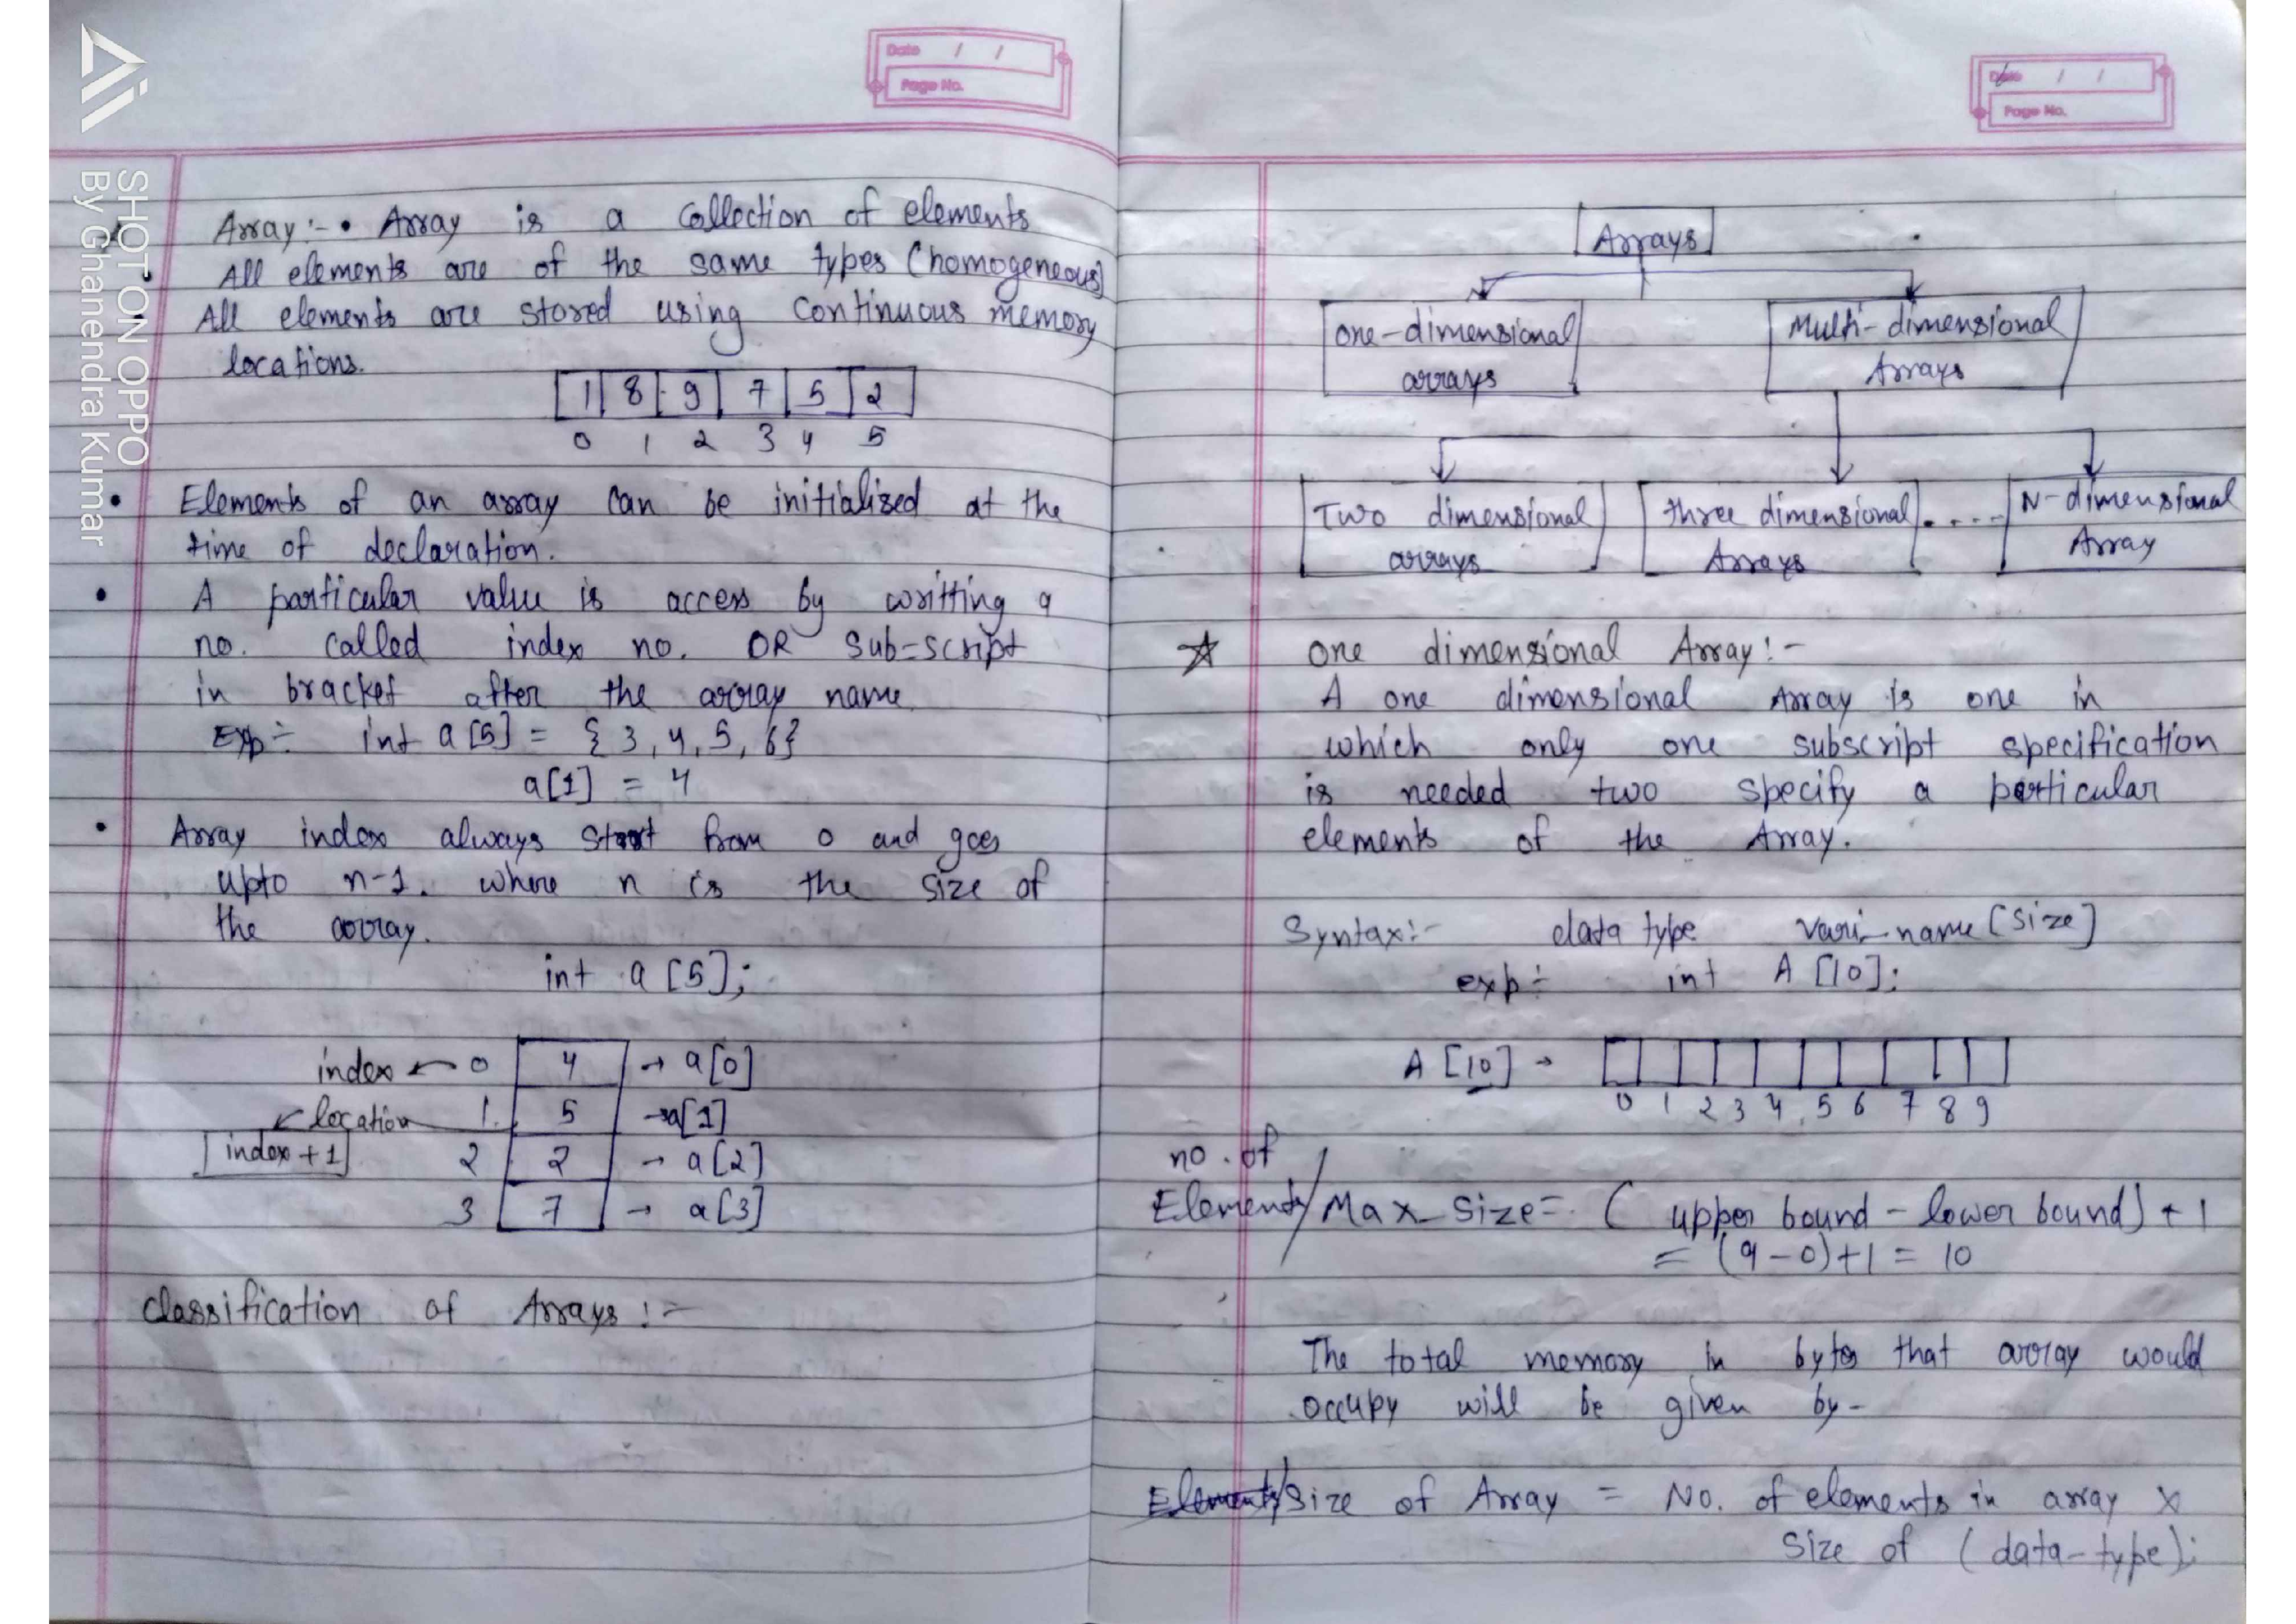 Date / /
Page No.
Array :- • Array is a collection of elements
All elements are of the same types (homogeneous)
All elements are stored using continuous memory
locations.
1 8 9 7 5 2
0 1 2 3 4 5
• Elements of an array can be initialized at the
time of declaration.
• A particular value is access by writting a
no. called index no. OR sub-script
in bracket after the array name
Exp÷ int a[5] = {3, 4, 5, 6}
a[1] = 4
• Array index always start from 0 and goes
upto n-1. where n is the size of
the array.
int a[5];
index ← 0 4 → a[0]
↙ location 1. 5 → a[1]
index + 1 2 2 → a[2]
3 7 → a[3]
Classification of Arrays :-
SHOT ON OPPO
By Ghanendra Kumar
Date / /
Page No.
Arrays
one-dimensional arrays
Multi-dimensional Arrays
Two dimensional arrays
three dimensional Arrays
....
N-dimensional Array
☆ one dimensional Array :-
A one dimensional Array is one in
which only one subscript specification
is needed two specify a particular
elements of the Array.
Syntax:- data type vari-name [size]
exp÷ int A [10];
A [10] →
0 1 2 3 4 5 6 7 8 9
no. of
Elements/Max_Size = (upper bound - lower bound) + 1
= (9-0)+1 = 10
The total memory in bytes that array would
occupy will be given by-
Size of Array = No. of elements in array x
Size of (data-type);